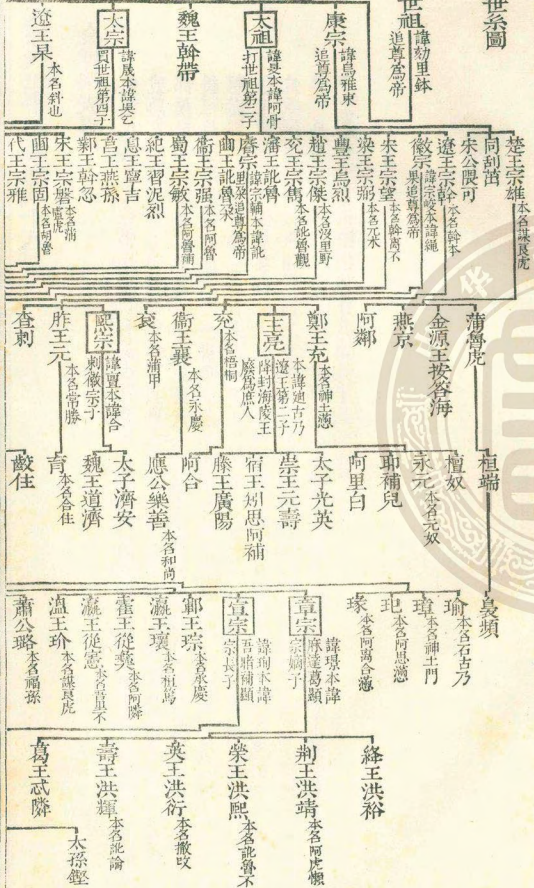 世系圖
世祖 諱劾里鉢 追尊爲帝
康宗 諱烏雅束 追尊爲帝
太祖 諱旻本諱阿骨打世祖第二子
魏王斡帶
太宗 諱晟本諱吳乞買世祖第四子
遼王杲 本名斜也
楚王宗雄 本名謀良虎
同刮茁
宋公隈可
遼王宗幹 本名斡本
徽宗 諱宗峻本諱繩果追尊爲帝
宋王宗望 本名斡離不
梁王宗弼 本名兀朮
豐王烏烈
趙王宗傑 本名沒里野
兗王宗雋 本名訛魯觀
瀋王訛魯
睿宗 諱宗輔本諱訛里朶追尊爲帝
豳王訛魯朶
衞王宗强 本名阿魯
蜀王宗敏 本名阿魯補
紀王習泥烈
息王寧吉
莒王燕孫
鄴王斡忽
宋王宗磐 本名蒲盧虎
豳王宗固 本名胡魯
代王宗雅
蒲魯虎
金源王按答海
燕京
阿鄰
鄭王充 本名神土懣
王亮 本諱迪古乃遼王第二子降封海陵王廢爲庶人
兗 本名梧桐
衞王襄 本名永慶
衮 本名蒲甲
熙宗 諱亶本諱合剌徽宗子
胙王元 本名常勝
查剌
桓端
檀奴
永元 本名元奴
耶補兒
阿里白
太子光英
崇王元壽
宿王矧思阿補
滕王廣陽
阿合
應公樂善 本名和尚
太子濟安
魏王道濟
育 本名合住
馺住
裊頻
瑜 本名石古乃
璋 本名神土門
玘 本名阿思懣
瑑 本名阿离合懣
章宗 諱璟本諱麻達葛顯宗嫡子
宣宗 諱珣本諱吾睹補顯宗長子
鄆王琮 本名承慶
瀛王瓌 本名桓篤
霍王從彝 本名阿憐
瀛王從憲 本名吾里不
溫王玠 本名謀良虎
蕭公璐 本名福孫
絳王洪裕
荆王洪靖 本名阿虎懶
榮王洪熙 本名訛魯不
英王洪衍 本名撒改
壽王洪輝 本名訛論
葛王忒隣
太孫鏗